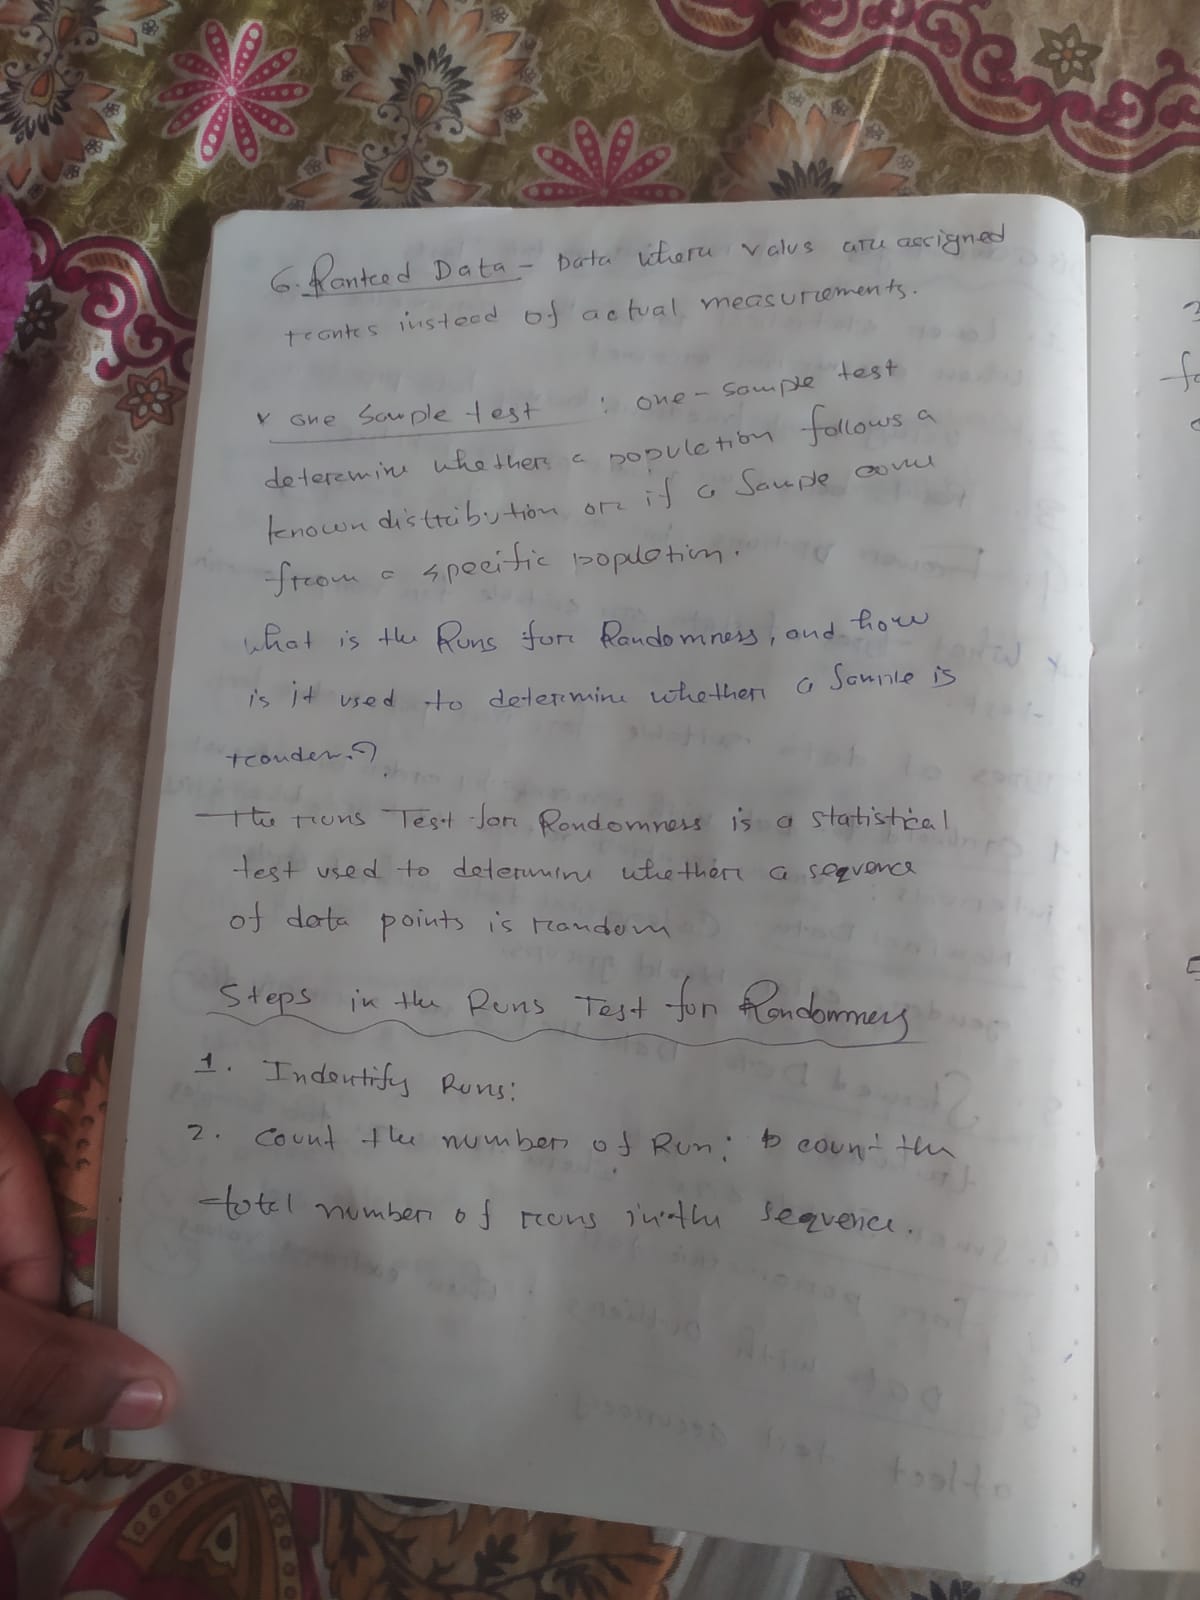 6. Ranked Data - Data where valus are assigned
ranks instead of actual measurements.
x one Sample test : one-sample test
determine whether a population follows a
known distribution or if a Sample come
from a specific population.
what is the Runs for Randomness, and how
is it used to determine whether a Sample is
random?
The runs Test for Randomness is a statistical
test used to determine whether a sequence
of data points is random
Steps in the Runs Test for Randomness
1. Indentify Runs:
2. Count the number of Run: count the
total number of runs in the sequence.